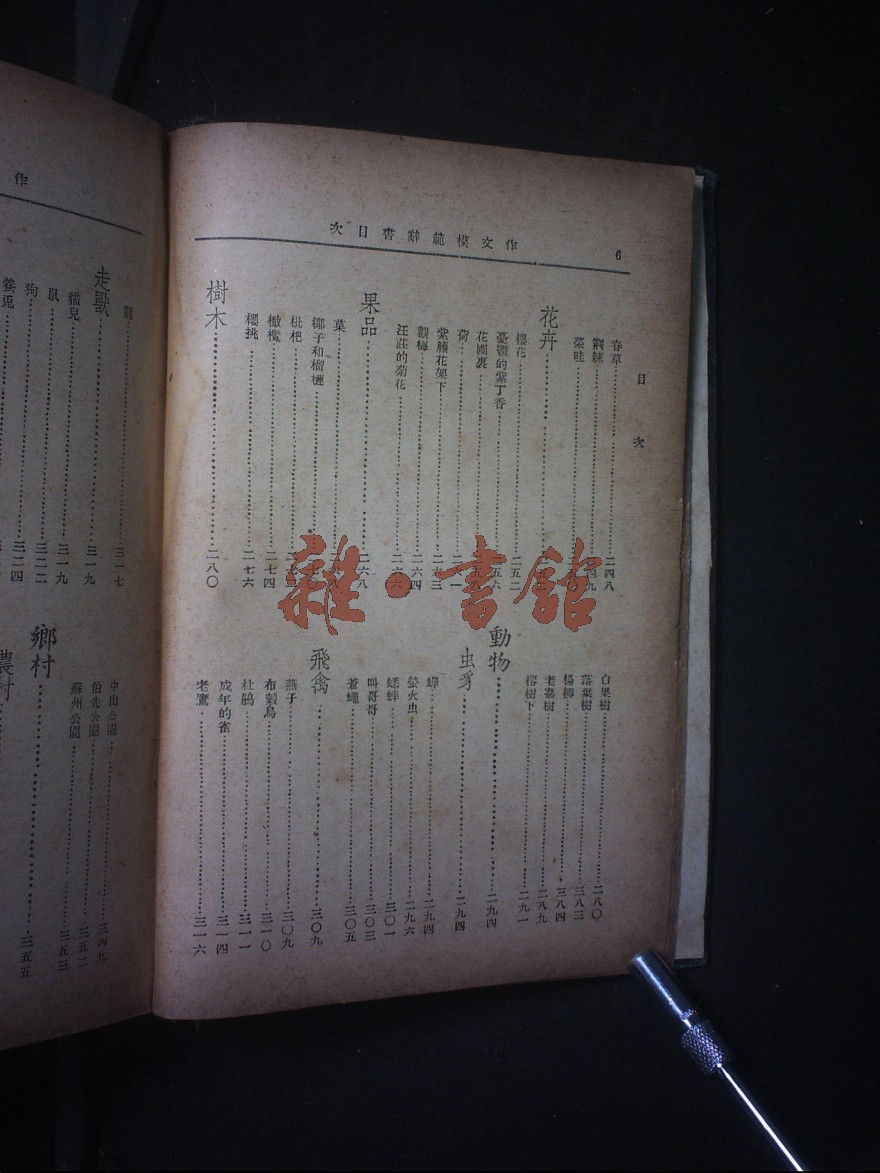 作文模範辭書目次
6
目次
春草 二四八
荆棘
菜畦
花卉
櫻花 二五二
憂鬱的紫丁香
花園裏
荷 二六一
紫藤花架下 二六三
觀梅 二六四
汪莊的菊花 二六六
果品 二六八
菓
椰子和榴槤
枇杷
橄欖 二七四
櫻挑 二七六
樹木 二八〇
白果樹 二八〇
落葉樹 三八三
楊柳 三八四
老荔樹 二八九
榕樹下 二九一
動物 二九四
虫豸 二九四
蟬 二九四
螢火虫 二九六
蟋蟀 三〇一
叫哥哥 三〇三
蒼蠅 三〇五
飛禽 三〇九
燕子 三〇九
布穀鳥 三一〇
杜鵑 三一一
成年的雀 三一四
老鷹 三一六
雜·書館
作
三一七
走獸 三一九
貓兒 三一九
鼠 三二二
狗 三二四
養兎
中山公園 三四九
伯先公園 三五二
蘇州公園 三五三
鄉村 三五五
農村